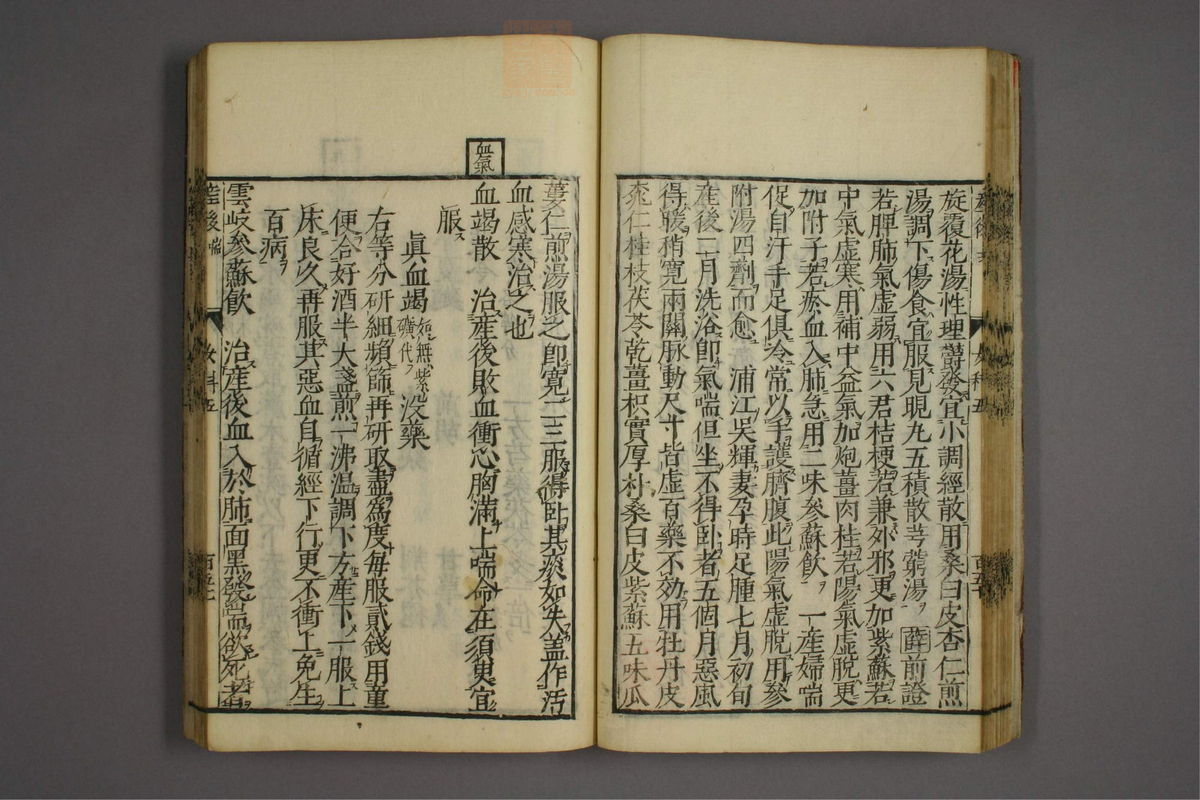 旋覆花湯性理鬱發宜小調經散用桑白皮杏仁煎
湯調下傷食宜服見晛丸五積散芎藭湯 薛前證
若脾肺氣虛弱用六君桔梗若兼外邪更加紫蘇若
中氣虛寒用補中益氣加炮薑肉桂若陽氣虛脫更
加附子若瘀血入肺急用二味參蘇飲 一產婦喘
促自汗手足俱冷常以手護臍腹此陽氣虛脫用參
附湯四劑而愈 浦江吳輝妻孕時足腫七月初旬
產後二月洗浴即氣喘但坐不得臥者五個月惡風
得暖稍寬兩關脈動尺寸皆虛百藥不効用牡丹皮
桃仁桂枝茯苓乾薑枳實厚朴桑白皮紫蘇五味瓜
蔞仁煎湯服之即寬二三服得臥其痰如失蓋作污
血感寒治之也
血氣
血竭散 治產後敗血衝心胸滿上喘命在須臾宜
服
眞血竭 如無紫礦代 没藥
右等分研細頻篩再研取盡為度每服貳錢用童
便合好酒半大盞煎一沸温調下方產下一服上
床良久再服其惡血自循經下行更不衝上免生
百病
雲岐參蘇飲 治產後血入於肺面黑發喘欲死者
產後喘 女科五